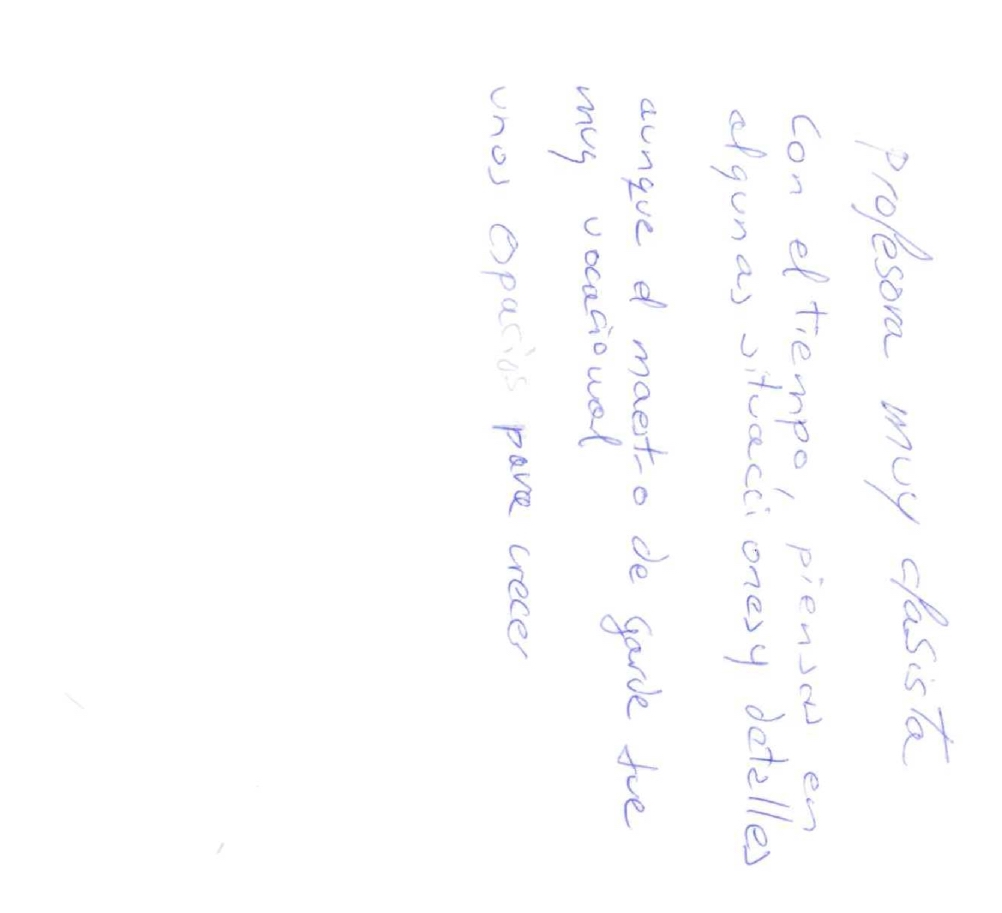 profesora muy clasista
Con el tiempo, piensas en
algunas situacciones y detalles
aunque el maestro de garde fue
muy vocacional
unos espacios para crecer